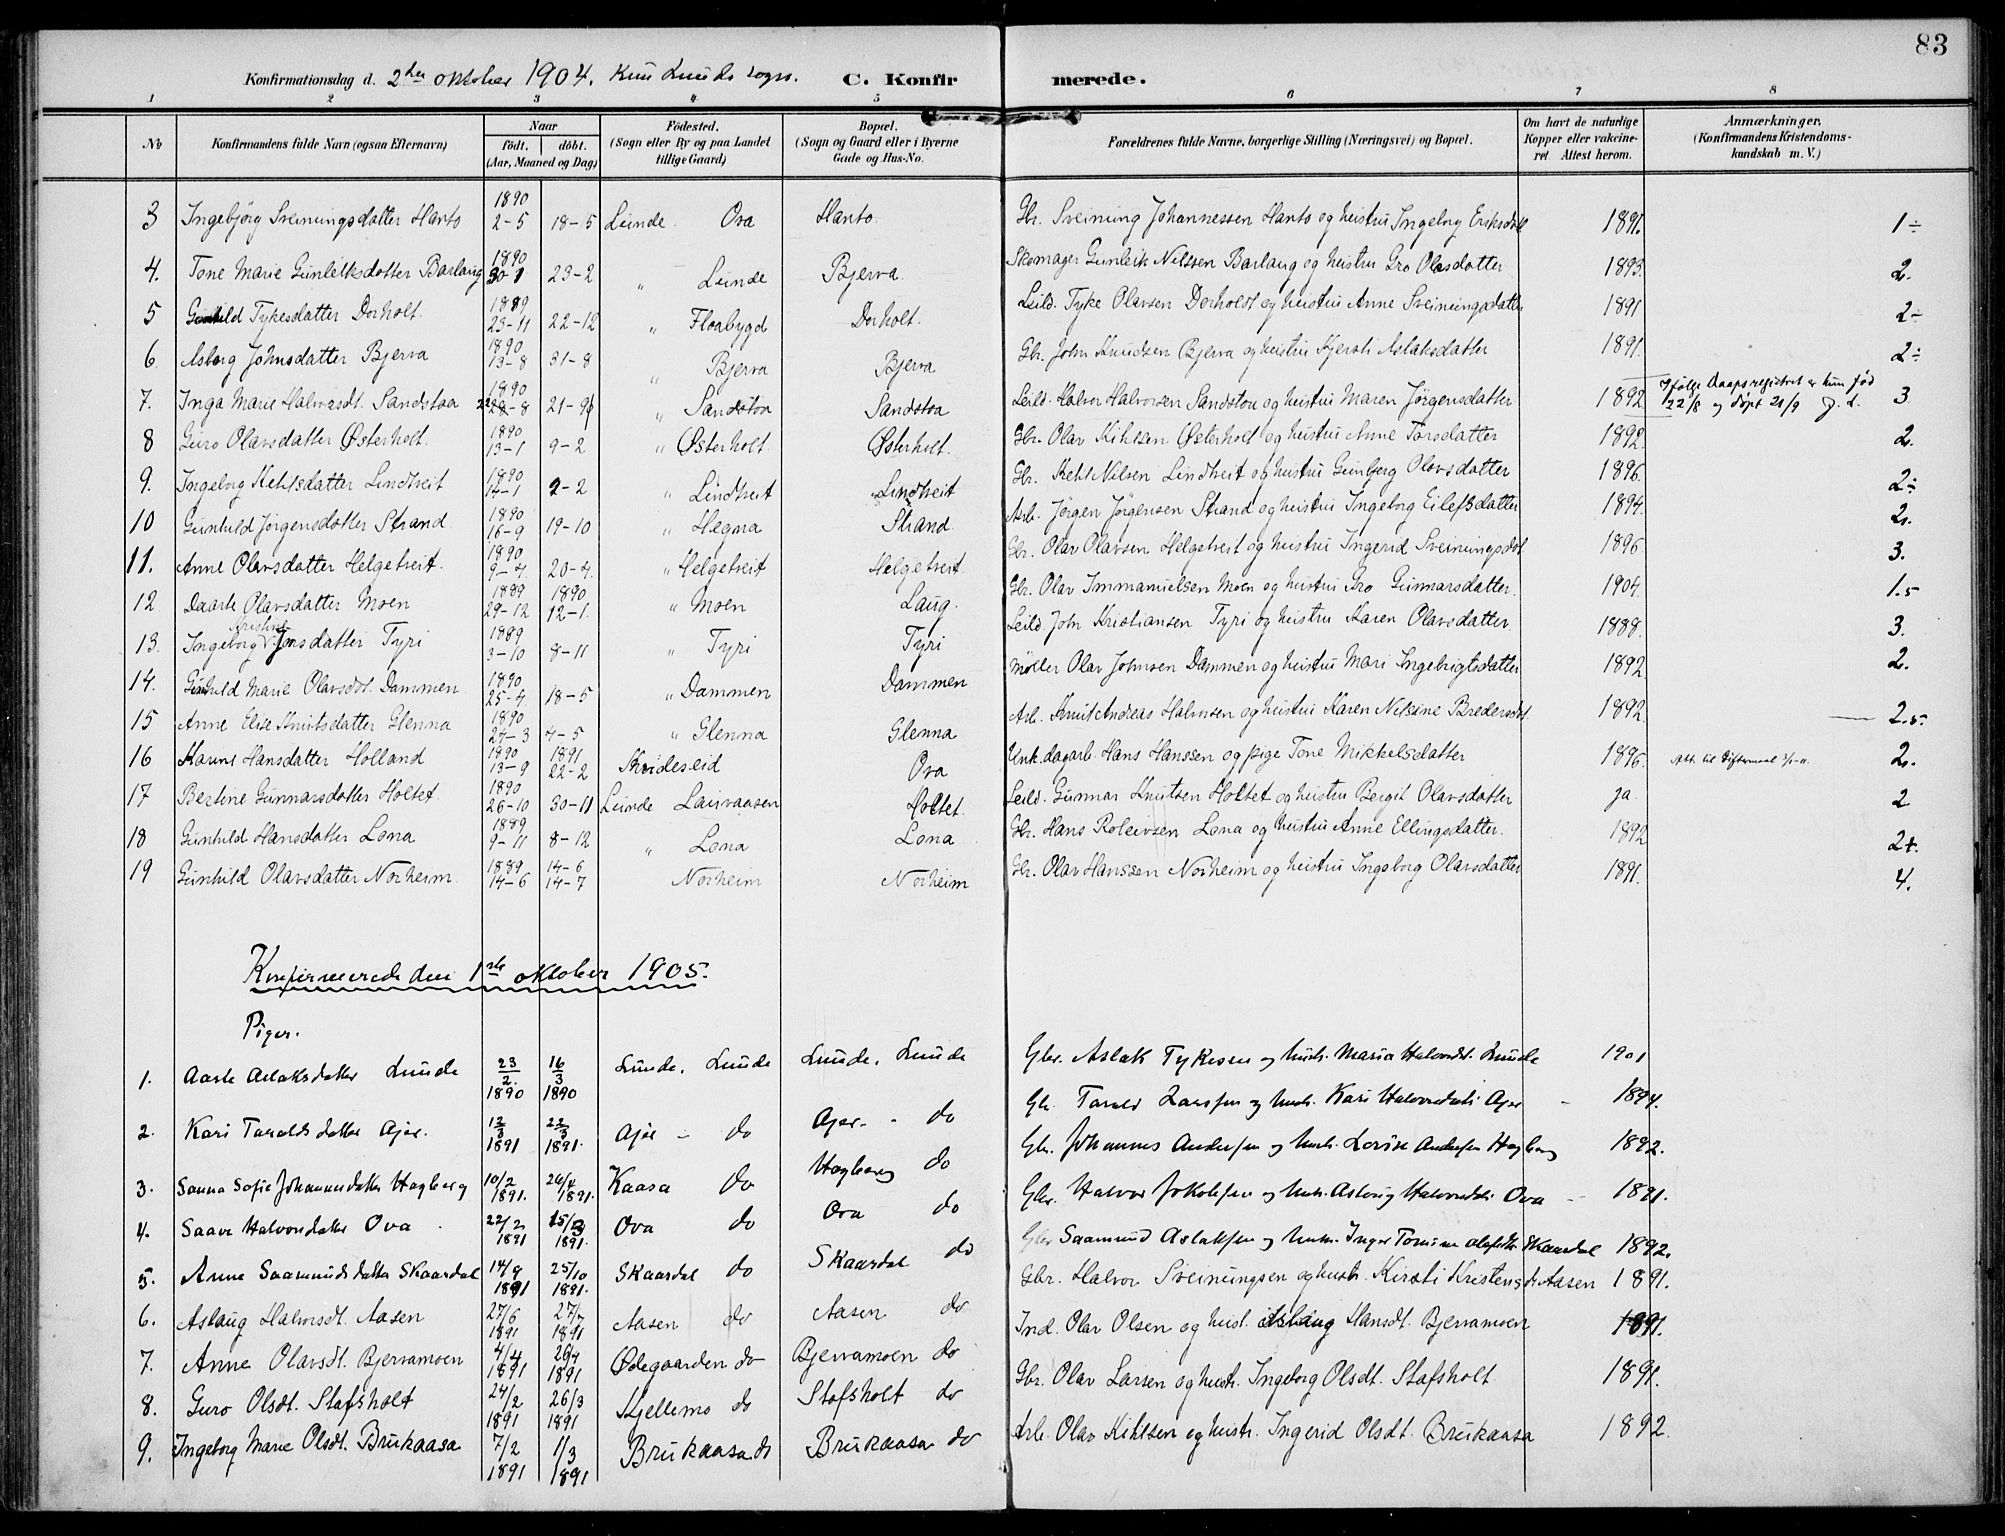 83
Konfirmationsdag d. 2den oktober 1904. Kun Lunde sogn. C. Konfirmerede.
1 2 3 4 5 6 7 8
No Konfirmandens fulde Navn (ogsaa Efternavn) Naar født. døbt. (Aar, Maaned og Dag) Fødested. (Sogn eller By og paa Landet tillige Gaard) Bopæl. (Sogn og Gaard eller i Byerne Gade og Hus-No. Forældrenes fulde Navne, borgerlige Stilling (Næringsvei) og Bopæl. Om havt de naturlige Kopper eller vakcineret. Attest herom. Anmærkninger. (Konfirmandens Kristendomskundskab m. V.)
3 Ingebjörg Sveinungsdatter Hanto 1890 2-5 18-5 Lunde Ova Hanto. Gbr. Sveinung Johannessen Hanto og hustru Ingeborg Eriksdat 1891. 1÷
4. Tone Marie Gunleiksdatter Barlaug 1890 30-1 23-2 " Lunde Bjerva. Skomager Gunleik Nilssen Barlaug og hustru Gro Olasdatter 1893. 2.
5 Gunhild Tykesdatter Dorholt. 1889 23-11 22-12 " Floabygd Dorholt. Leild. Tyke Olavsen Dorholdt og hustru Anne Sveinungsdatter 1891 2÷
6 Asborg Johnsdatter Bjerva 1890 13-8 31-8 " Bjerva Bjerva Gbr. John Knudsen Bjerva og hustru Kjersti Aslaksdatter 1891. 2÷
7. Inga Marie Halvorsdt. Sandstaa 1890 22-8 21-9 " Sandstoa Sandstoa Leild. Halvor Halvorsen Sandstoa og hustru Maren Jörgensdatter 1892 Ifølge Daapsregistret er hun fød 22/8 og døpt 21/9 3
8 Guro Olavsdatter Østerholt. 1890 13-1 9-2 " Østerholt. Østerholt. Gbr. Olav Kihlsen Østerholt og hustru Anne Torsdatter 1892. 2.
9. Ingeborg Kehlsdatter Lindtveit 1890 14-1 2-2 " Lindtveit Lindtveit Gbr. Kehl Nilsen Lindtveit og hustru Gunbjørg Olavsdatter 1896. 2÷
10 Gunhild Jørgensdatter Strand 1890 16-9 19-10 " Hegna Strand Arb. Jörgen Jörgensen Strand og hustru Ingeborg Eilefsdatter 1894. 2.
11. Anne Olavsdatter Helgetveit. 1890 9-4. 20-4. " Helgetveit Helgetveit. Gbr. Olav Olavsen Helgetveit og hustru Ingerid Sveinungsdat. 1896. 3.
12 Daarte Olavsdatter Moen 1889 29-12 1890 12-1. " Moen Laug. Gbr. Olav Immanuelsen Moen og hustru Gro Gunnarsdatter. 1904. 1.5
13. Ingeborg Kristine Jonsdatter Tyri 1889 3-10 8-11 " Tyri Tyri Leild. John Kristiansen Tyri og hustru Karen Olavsdatter 1888. 3.
14. Gunhild Marie Olavsdt. Dammen 1890 25-4. 18-5 " Dammen Dammen Møller Olav Johnsen Dammen og hustru Mari Ingebrigtsdatter 1892 2.
15 Anne Elise Knutsdatter Glenna 1890 24-3 4-5 " Glenna Glenna Arb. Knut Andreas Halvorsen og hustru Karen Nelsine Bredersdt. 1892 2.5.
16 Hanne Hansdatter Holland 1890 13-9 1891 22-2 Skideseid Ova Unk. dagarb. Hans Hanssen og pige Tone Mikkelsdatter 1896. Att. til Giftermaal 2.
17 Bertine Gunnarsdatter Holtet 1890 26-10 30-11 Lunde Laurvaasen Holtet. Leild. Gunnar Knutsen Holtet og hustru Bergit Olavsdatter ja 2
18 Gunhild Hansdatter Lona 1889 9-11 8-12 " Lona Lona Gbr. Hans Roleivsen Lona og hustru Anne Ellingsdatter. 1892 2+.
19 Gunhild Olavsdatter Norheim 1889 14-6 14-6 14-7 Norheim Norheim Gbr. Olav Hanssen Norheim og hustru Ingeborg Olavsdatter 1891. 4.
Konfirmerede den 1ste oktober 1905.
Piger.
1. Aaste Aslaksdatter Lunde 23/2. 1890 16/3 1890 Lunde. Lunde Lunde. Lunde Gbr. Aslak Tykesen og hustr. Maria Halvorsdt. Lunde 1901
2. Kari Taraldsdatter Ajer. 12/3 1891 22/3 1891. Ajer - do Ajer. - do Gbr. Tarald Larssen og hustr. Kari Halvorsdatt. Ajer - 1894.
3. Sanna Sofie Johannesdatter Hagberg 10/2 1891. 26/4 1891. Kaasa do Hagberg do Gbr. Johannes Anderssen og hustr. Lovise Anderssen Hagberg 1892.
4. Saave Halvorsdatter Ova 22/2 1891 15/3 1891. Ova do Ova do Gbr. Halvor Jokolssen og hustr. Aslaug Halvorsdt. Ova - 1891.
5. Anne Saamundsdatter Skaardal 14/9 1891 25/10 1891. Skaardal do Skaardal do Gbr. Saamund Aslaksen og hustr. Inger Tomine Olafsdtr. Skaardal 1892.
6. Aslaug Halvorsdt. Aasen 27/6 1891 27/7 1891 Aasen do Aasen do Gbr. Halvor Sveinungsen og hustr. Kirsti Kristensdt. Aasen 1891.
7. Anne Olavsdt. Bjervamoen 4/4 1891 26/4 1891 Ødegaarden do Bjervamoen do Ind. Olav Olsen og hust. Aslaug Hansdt. Bjervamoen 1891.
8. Guro Olsdt. Stafsholt 24/2 1891 26/3 1891 Kjellemo do Stafsholt do Gbr. Olav Larsen og hustr. Ingeborg Olsdt. Stafsholt 1891.
9. Ingeborg Marie Olsdt. Brukaasa 7/2 1891 1/3 1891 Brukaasa do Brukaasa do Arb. Olav Kihlsen og hustr. Ingerid Olsdt. Brukaasa 1892.